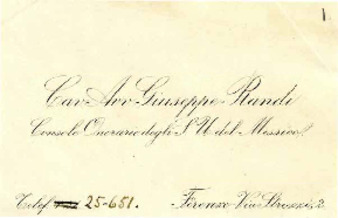 1.
Cav. Avv. Giuseppe Randi
Console Onorario degli S. U. del Messico
Telef. 25-651.
Firenze - Via Strozzi, 2